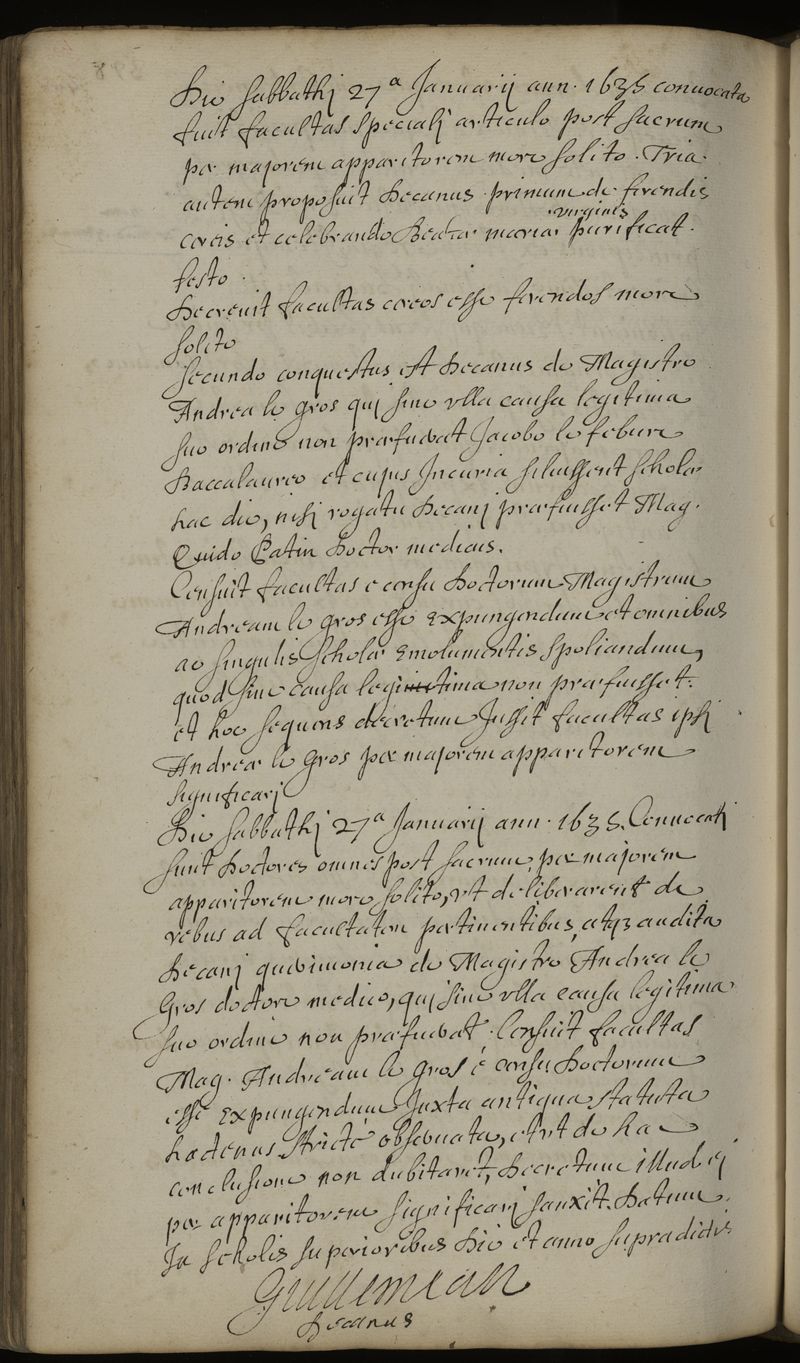 Die Sabbathj 27ª Januarij ann. 1635 convocata
fuit facultas specialj articulo post sacrum
per majorem apparitorem more solito. Tria
autem proposuit Decanus. primum de ferendis
cereis et celebrando Beatæ mariæ virginis purificat.
festo.
Decrevit facultas cereos esse ferendos more
solito
secundo conquestus est Decanus de Magistro
Andrea le gros quj sine ulla causa legitima
suo ordine non præfuerat Jacobo le febure
Baccalaureo et cujus Incuria siluissent scholæ
hac die, nisj rogatu Decanj præfuisset Mag.
Guido Patin Doctor medicus.
Censuit facultas e censu Doctorum Magistrum
Andream le gros esse Expungendum et omnibus
ac singulis scholæ Emolumentis spoliandum,
quod sine causa legitima non præfuisset.
et hoc sequens decretum Jussit facultas ipsj
Andreæ le Gros per majorem apparitorem
significarj
Die sabbathj 27ª Januarij ann. 1635. Convocatj
sunt Doctores omnes post sacrum, per majorem
apparitorem more solito, vt deliberarent de
rebus ad facultatem pertinentibus, atq3 audita
Decanj querimonia de Magistro Andrea le
Gros doctore medico, quj sine vlla causa legitima
suo ordine non præfuerat. Censuit facultas
Mag. Andream le gros é censu Doctorum
esse Expungendum Juxta antiqua statuta
hactenus stricté observata, et vt de hac
conclusione non dubitaret, Decretum illud ej
per apparitorem significarj sanxit. Datum
In scholis superioribus Die et anno supradictis
Guillemeau
Decanus